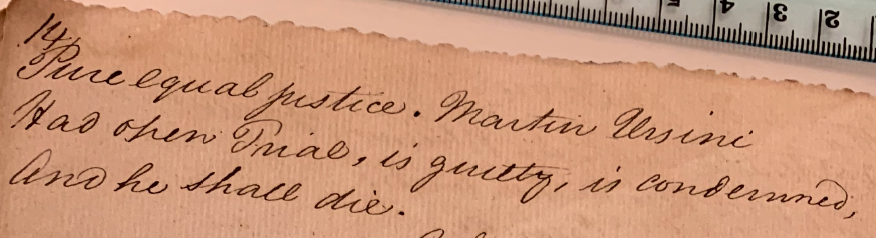 14
Pure equal justice. Martin Ursini
Had open Trial, is guilty, is condemned,
And he shall die.